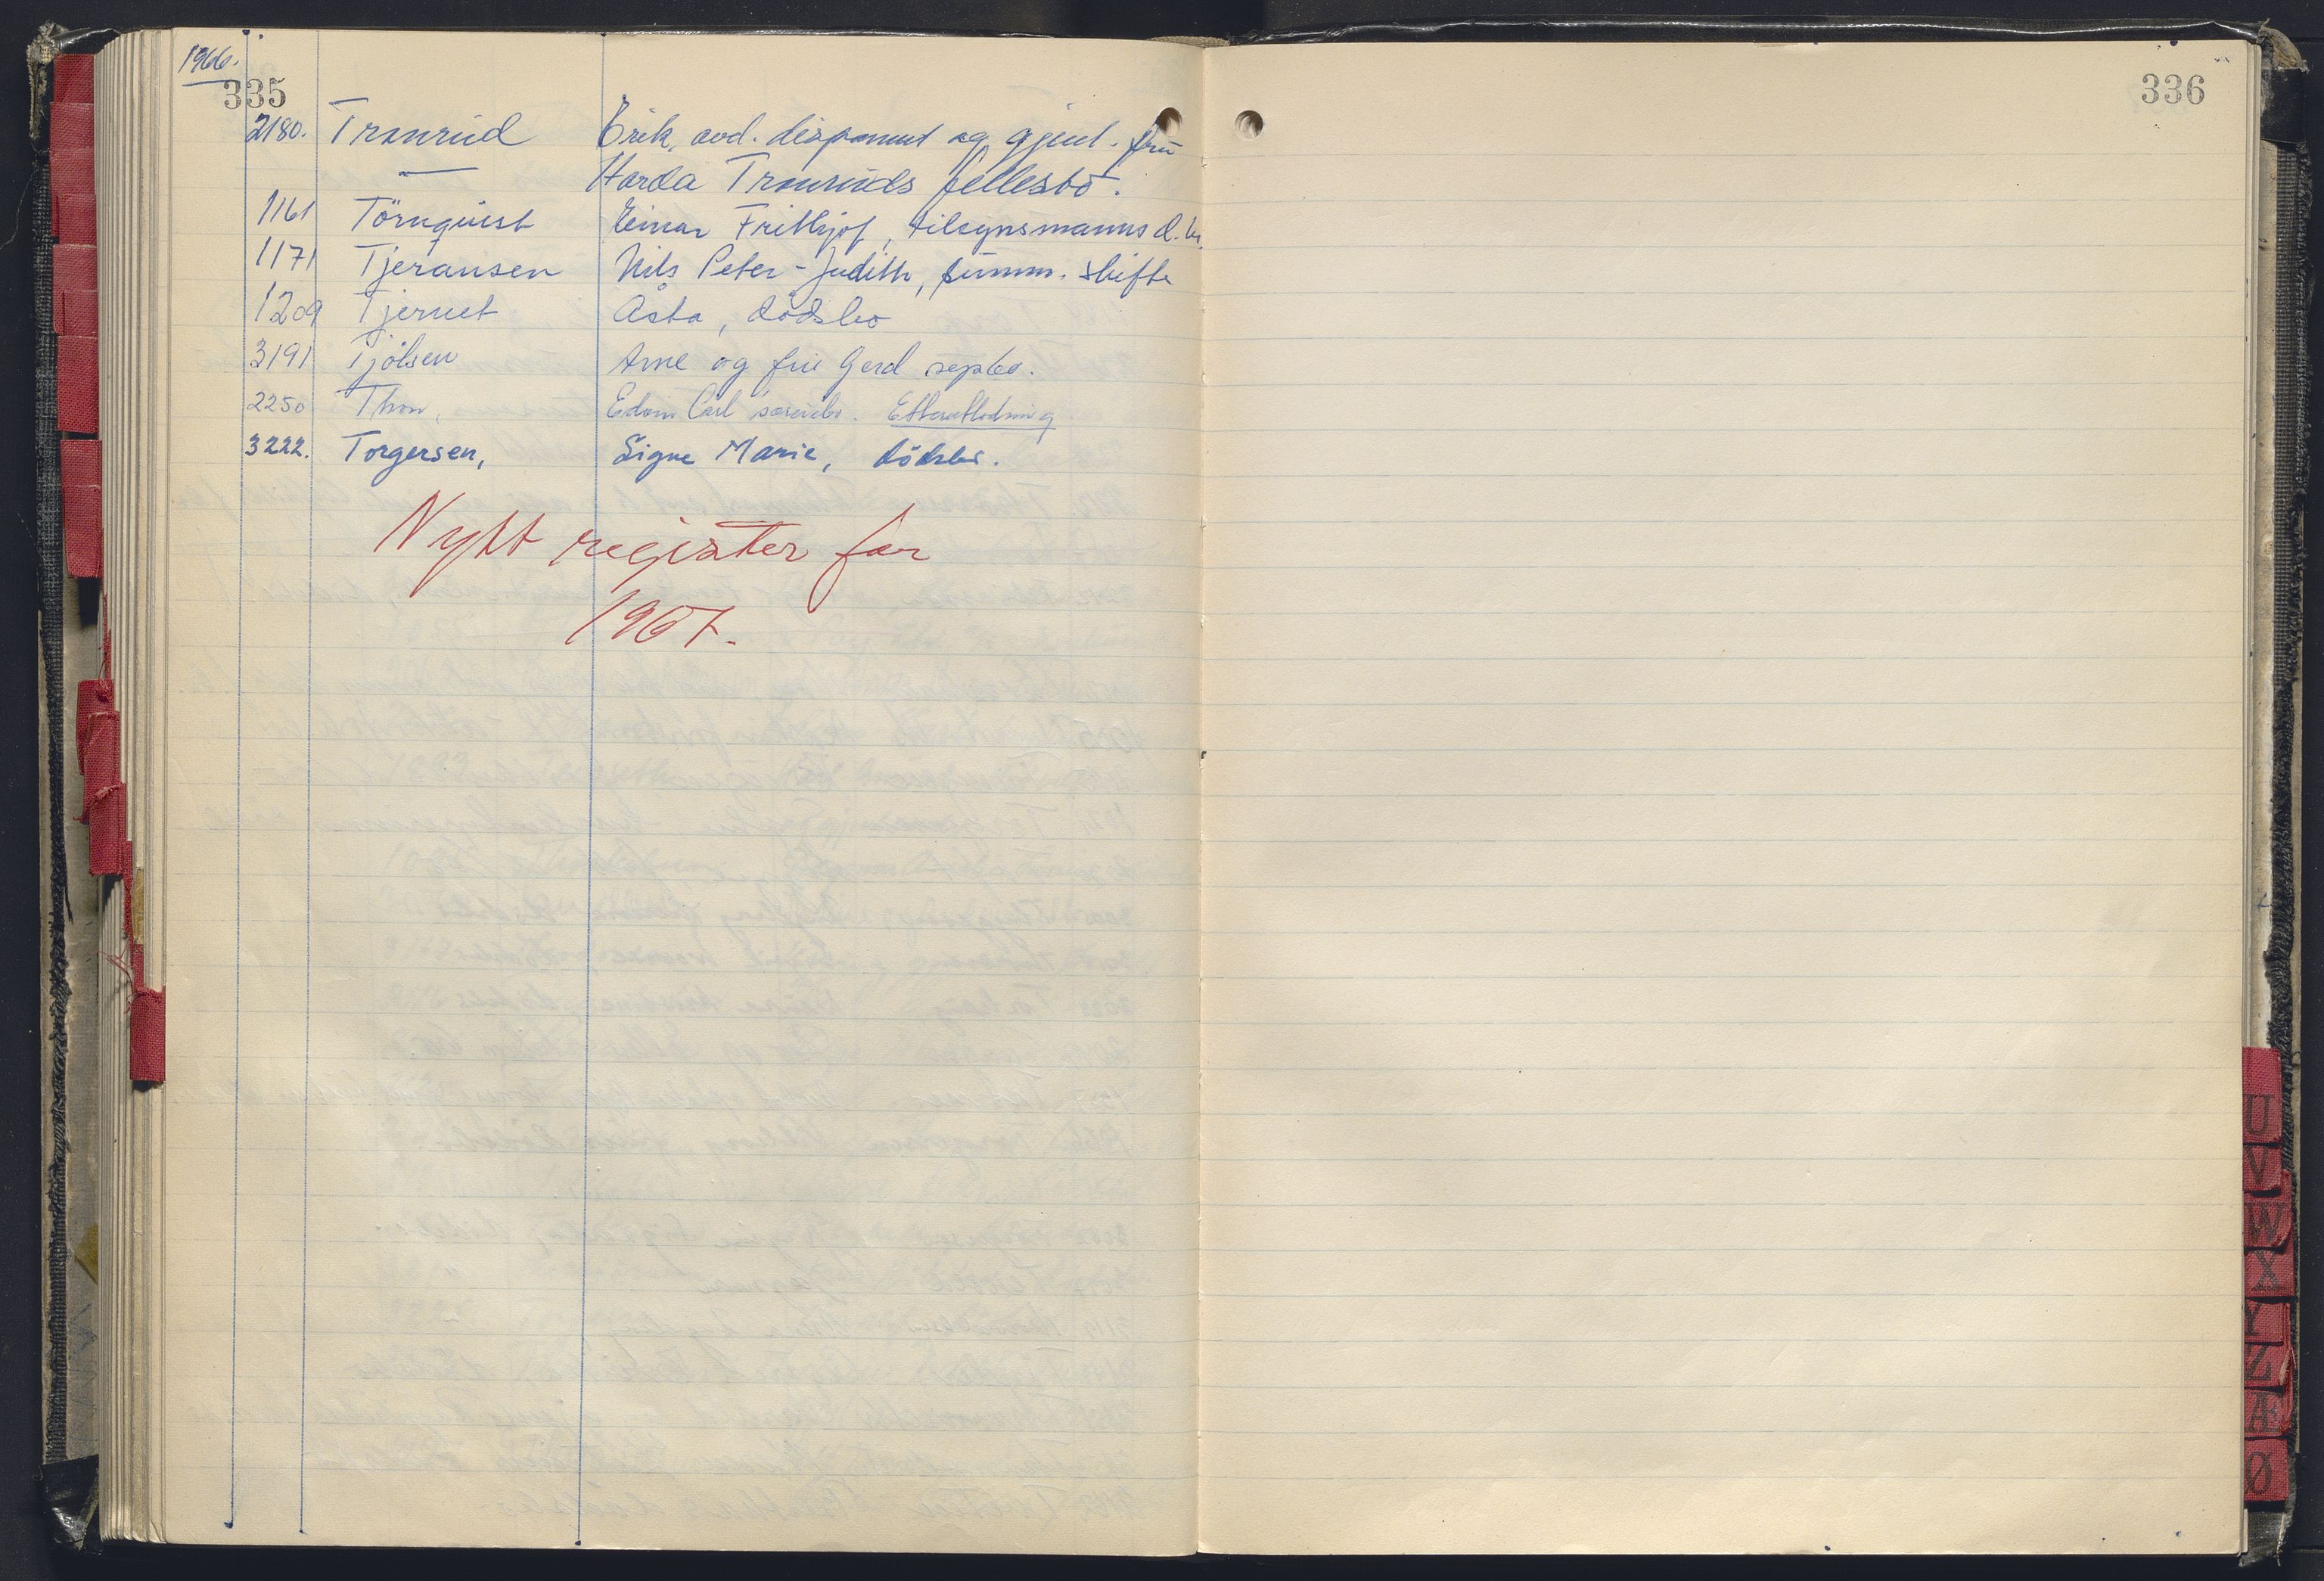 1966.
335
336
2180. Tronrud Erik, avd. disponent og gjenl. fru
— Harda Tronruds fellesbo.
1161 Törnquist Einar Frithjof, tilsynsmanns d.bo.
1171 Tjeransen Nils Peter - Judith, summ. skifte
1209 Tjernet Åsta, dødsbo
3191 Tjølsen Arne og frue Gerd sepbo.
2250 Thon, Edom Carl særeiebo. Etterutlodning
3222. Torgersen, Signe Marie, dödsbo.
Nytt register for
1967.
U
V
W
X
Y
Z
Æ
Ø